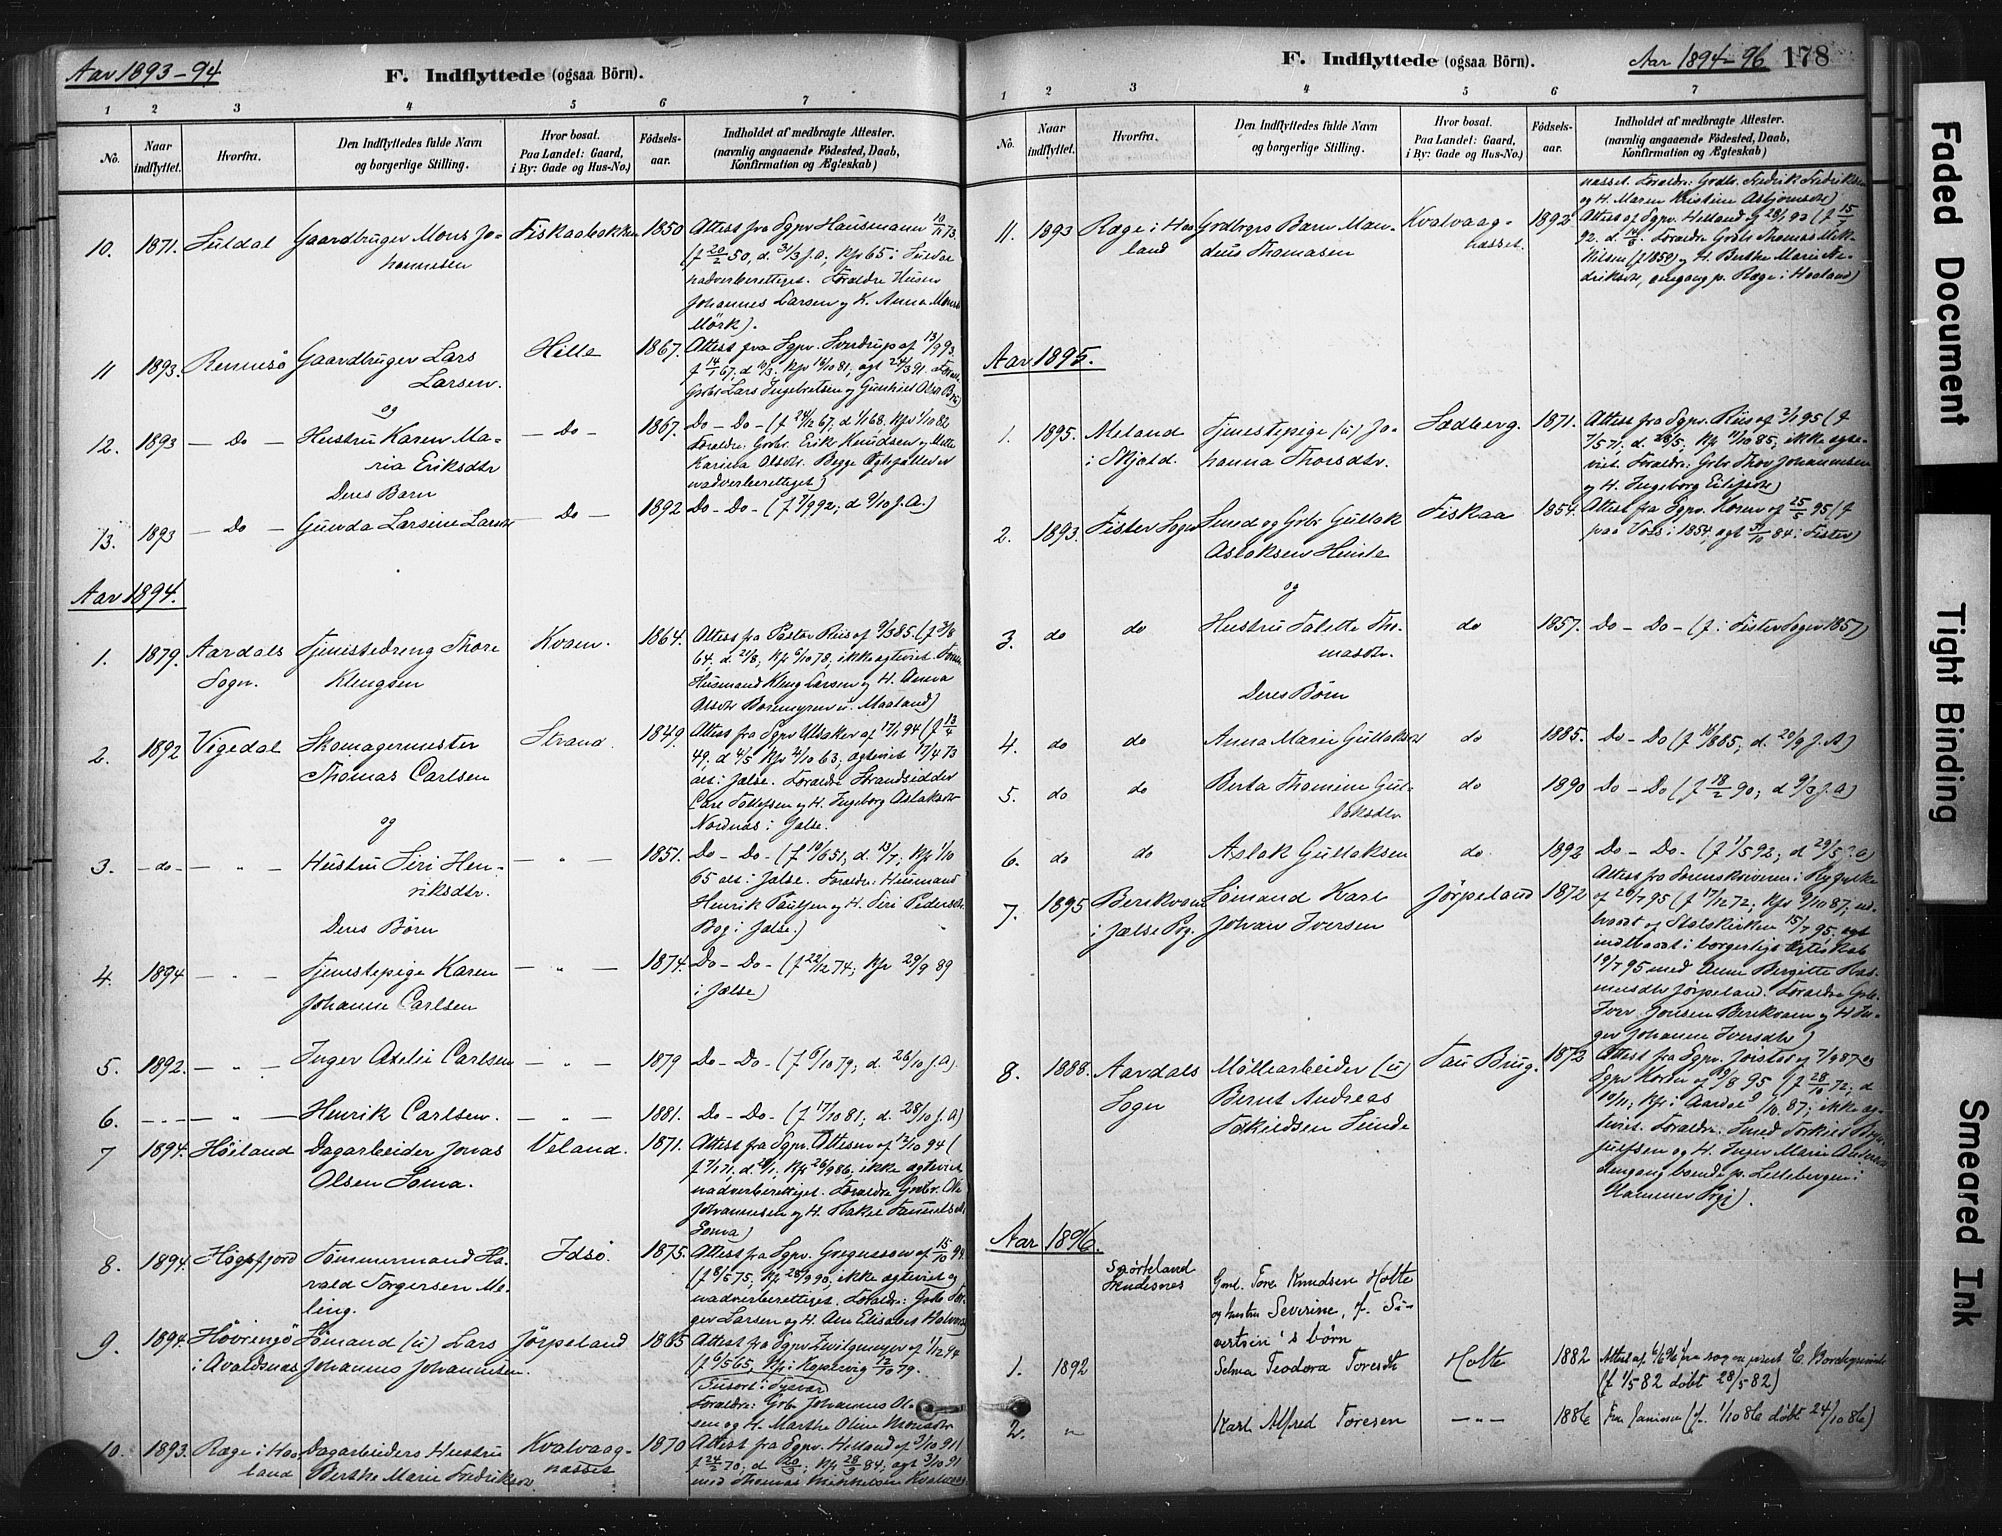 Aar 1893-94
F. Indflyttede (ogsaa Börn).
1 2 3 4 5 6 7
No.
Naar indflyttet.
Hvorfra.
Den Indflyttedes fulde Navn og borgerlige Stilling.
Hvor bosat. Paa Landet: Gaard, i By: Gade og Hus-No.)
Födsels-aar.
Indholdet af medbragte Attester. (navnlig angaaende Födested, Daab, Konfirmation og Ægteskab)
10. 1871. Suldal Gaardbruger Mons Jo-
hannesen
Fiskaabakken 1850 Attest fra Sgpr Hausmann 10/11 73
(f 20/2 50, d. 31/3 s.A., Kfr 65 i Suldal
nadverberettiget. Foraldre Husm
Johannes Larsen og K. Anna Monsd
Mörk).
11 1893. Rennesö Gaardbruger Lars
Larsen.
Hille 1867. Attest fra Sgpr. Sverdrup af 13/9 93
og
12. 1893 — Do — Hustru Karen Ma-
ria Eriksdtr
— Do — 1867. Do — Do — (f 24/12 67. d. 1/1 68. Kfr 1/10 82
Foraldre: Grbr. Erik Knudsen og Mette
Karina Olsdtr. Begge Ægtefaller er
nadverberettiget)
Deres Barn
13. 1893 — Do — Gunda Larsine Larsdtr — Do — 1892 Do — Do — (f 7/9 92; d 9/10 s.A.)
Aar 1894.
1. 1879. Aardals
Sogn.
Tjenestedreng Thore
Klengsen
Kvam. 1864. Attest fra Pastor Riis af 9/3 85. (f 3/8
64, d. 21/8, Kfr 6/10 78, ikke agteviet.
Husmand Kleng Larsen og H. Anna
Olsdtr u. Maaland)
2. 1892 Vigedal Skomagermester
Thomas Carlsen
Strand. 1849. Attest fra Sgpr Utsaker af 17/1 94 (f 13/4
49, d. 4/5 Kfr 4/10 63, agteviet 17/4 73
alt i Jælse. Foraldre Strandsidder
Carl Tollefsen og H. Ingeborg Aslaksdtr
Nordnas i Jælse.
og
3. — do — — " — Hustru Siri Hen-
riksdtr.
— " — 1851. Do — Do — (f 10/6 51; d. 13/7; Kfr 1/10
65 alt i Jælse. Foraldre: Husmand
Henrik Paulsen og H. Siri Pedersdtr
Bog i Jælse.)
Deres Börn
4. 1894 — " — Tjenestepige Karen
Johanne Carlsen
— " — 1874. Do — Do — (f 22/12 74; Kfr 29/9 89
i Jælse)
5. 1892. — " — Inger Axelie Carlsen — " — 1879 Do — Do — (f 6/10 79; d. 26/10 s.A.)
6. — " — Henrik Carlsen. — " — 1881. Do — Do — (f 17/10 81; d. 28/10 s.A)
7 1894. Höiland Dagarbeider Jonas
Olsen Soma.
Veland. 1871. Attest fra Sgpr. Ottesen af 12/10 94 (
f 7/1 71, d. 29/1, Kfr 26/9 86; ikke agteviet
nadverberettiget. Foraldre Grdbr. Ole
Johannesen og H. Rakel
Soma)
8. 1894. Högsfjord Tömmermand Ha-
rald Torgersen Me-
ling.
Idsö. 1875. Attest fra Sgpr. Gregussen af 15/10 94
(f 8/5 75, Kfr 28/9 90, ikke agteviet og
nadverberettiget. Foraldre: Grbr Tor-
ger Larsen og H. Ane Elisabet Halvorsd
9. 1894. Hövringö
i Avaldsnas
Sömand (u) Lars
Johannes Johannesen.
Jörpeland 1865 Attest fra Sgpr af 1/12 94
(f 6/5 65, Kfr i Kopervig 12/10 79.
Foraldre: Grbr Johannes Ol-
sen og H. Marthe Oline Monsdtr
10. 1893. Ræge i Haa-
land
Dagarbeiders Hustru
Berthe Marie Fredriksdtr
Kvalvaag-
nasset
1870 Attest fra Sgpr. Helland af 3/10 91 (
f 24/2 70, d. 20/3; Kfr 28/9 84, agt 3/10 91
med Thomas Mikkelsen Kvalvaag-
F. Indflyttede (ogsaa Börn).
Aar 1894-96
178
1 2 3 4 5 6 7
No.
Naar indflyttet.
Hvorfra.
Den Indflyttedes fulde Navn og borgerlige Stilling.
Hvor bosat. Paa Landet: Gaard, i By: Gade og Hus-No.)
Födsels-aar.
Indholdet af medbragte Attester. (navnlig angaaende Födested, Daab, Konfirmation og Ægteskab)
nasset. Foraldre: Grdbr. Fredrik Fredriksen
og H. Maren Kristine Asbjornsdtr)
11. 1893 Ræge i Haa-
land
Grdbrgrs Barn Man-
dius Thomasen
Kvalvaag-
nasset.
1892 Attest af Sgpr. Helland af 28/1 93 (f 15/7
92. d. 14/8. Foraldre Grdbr Thomas Mik-
kelsen (f 1859) og H. Berthe Marie Fre-
driksdtr, dengang p. Ræge i Haaland)
Aar 1895.
1. 1895. Meland
i Skjold.
Tjenestepige (u) Jo-
hanna Thorsdtr.
Sedberg. 1871. Attest fra Sgpr. Riis af 2/1 95 (f
7/5 71, d. 28/5, Kfr 11/10 85, ikke agte-
viet. Foraldre: Grbr Thor Johannesen
og H. Ingeborg Eilefsdtr)
2. 1893. Fister Sogn Smed og Grbr Gullak
Aslaksen Heinle
Fiskaa 1854. Attest fra Sgpr. Koren af 25/5 95 (f
paa Voss i 1854, agt 31/10 84 i Fister)
og
3. do do Hustru Talette Tho-
masdtr.
do 1857. Do — Do — (f i Fister Sogn 1857)
Deres Börn
4. do do Anna Marie Gullaksdtr do 1885. Do — Do (f 16/8 85; d. 20/9 s.A)
5. do do Berta Thomine Gul-
laksdtr
do 1890 Do — Do (f 18/2 90; d 9/3 s.A)
6. do do Aslak Gullaksen do 1892 Do — Do — (f 1/5 92; d 29/5 s.A)
7. 1895 Berekvam
i Jælse Pg.
Sömand Karl
Johan Iversen
Jörpeland 1872 Attest fra Sorenskriveren i Ryfylke
af 20/7 95 (f 17/12 72; Kfr 9/10 87; ud-
traadt af Statskirken 15/7 95, agt
indtraadt i borgerligt Ægteskab
19/7 95 med Anne Bergitte Ras-
musdtr Jörpeland. Foraldre Grbr.
Iver Jonsen Berekvam og H. In-
ger Johanne Iversdtr)
8. 1888. Aardals
Sogn
Möllearbeider (u)
Bernt Andreas
Torkildsen Lunde
Tau Brug. 1872 Attest fra Sgpr. Jorstad af 7/9 87 og
Sgpr Koren af 9/8 95 (f 28/10 72; d
10/11; Kfr i Aardal 9/10 87; ikke ag-
teviet. Foraldre: Smed Torkild
og H. Inger Marie
dengang boende p. Lillebergen i
Hammer Pgj).
Aar 1896.
Spörteland
Gml. Tore Knudsen Holte
og hustru Severine, f. Si-
vertsen's börn
1. 1892 Selma Teodora Toresdt Holte 1882 Attest af 6/6 96 fra sogneprest E.
(f 1/5 82 döbt 28/5 82)
2. " Karl Alfred Toresen — " — 1886 Fra samme (f. 1/10 86 döbt 24/10 86)
Faded Document
Tight Binding
Smeared Ink